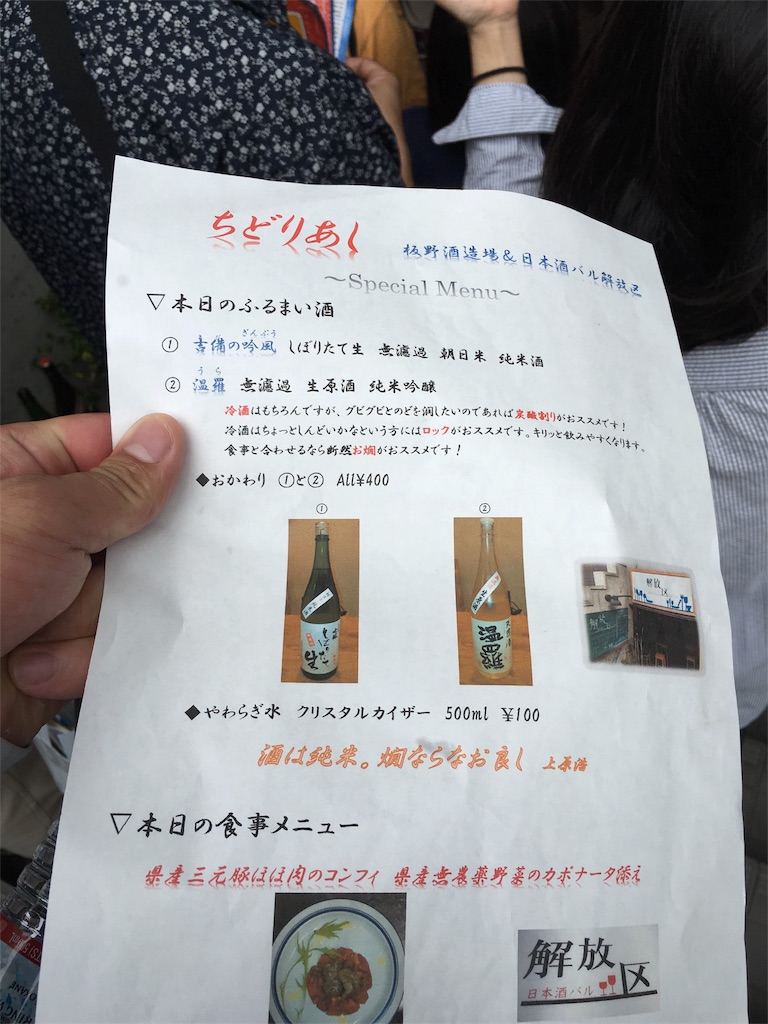 ちどりあし
板野酒造場&日本酒バル解放区
〜Special Menu〜
▽本日のふるまい酒
ぎんぷう
① 吉備の吟風 しぼりたて生 無濾過 朝日米 純米酒
うら
② 温羅 無濾過 生原酒 純米吟醸
冷酒はもちろんですが、グビグビとのどを潤したいのであれば炭酸割りがおススメです!
冷酒はちょっとしんどいかなという方にはロックがおススメです。キリッと飲みやすくなります。
食事と合わせるなら断然お燗がおススメです!
◆おかわり ①と② All¥400
① ②
生
生原酒
温羅
解放区
◆やわらぎ水 クリスタルカイザー 500ml ¥100
酒は純米。燗ならなお良し 上原浩
▽本日の食事メニュー
県産三元豚ほほ肉のコンフィ 県産無農薬野菜のカポナータ添え
解放区
日本酒バル